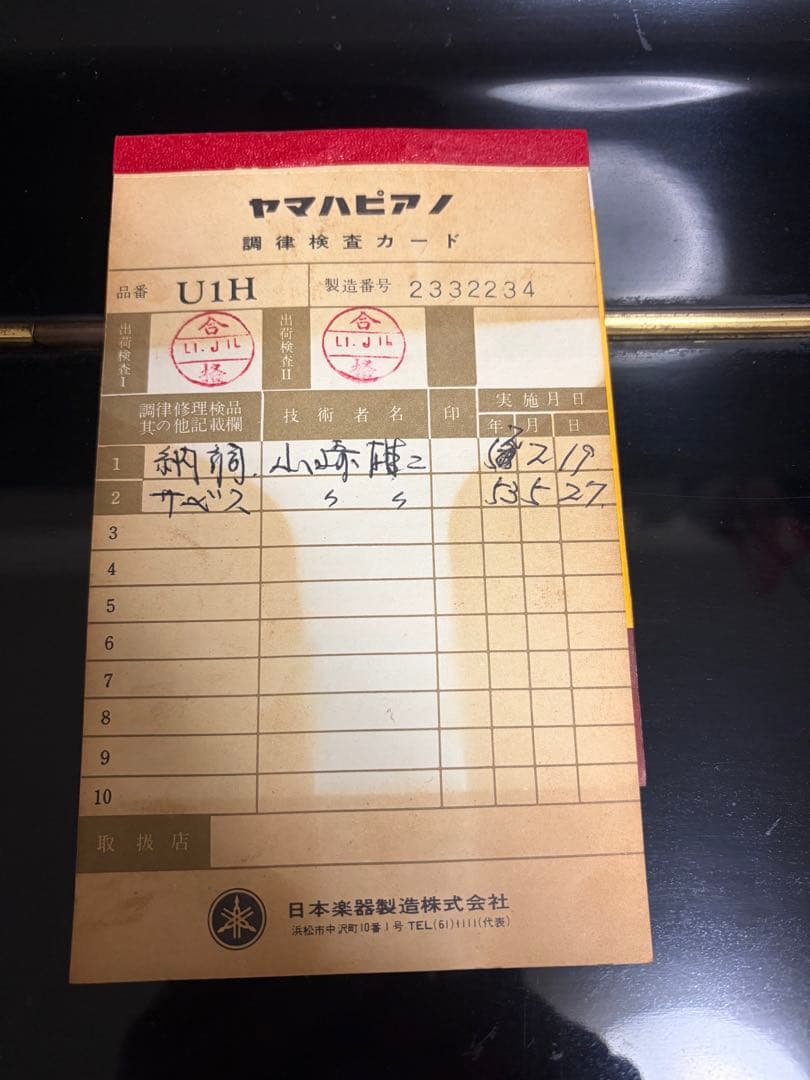 ヤマハピアノ
調律検査カード
品番 U1H 製造番号 2332234
出荷検査I 合格 出荷検査II 合格
調律修理検品其の他記載欄 技術者名 印 実施月日
年 月 日
1 納調. 山崎 2 19
2 サービス 〃 〃 53 5 27.
3
4
5
6
7
8
9
10
取扱店
日本楽器製造株式会社
浜松市中沢町10番1号 TEL(61)1111(代表)